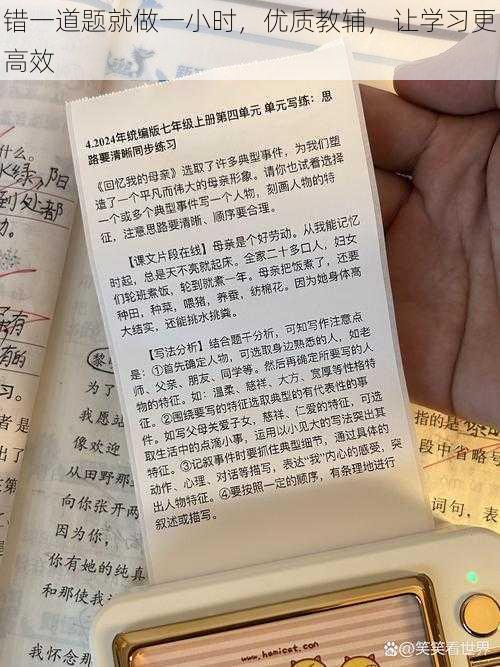 错一道题就做一小时，优质教辅，让学习更
高效
4.2024年统编版七年级上册第四单元 单元写练：思
路要清晰同步练习
《回忆我的母亲》选取了许多典型事件，为我们塑
造了一个平凡而伟大的母亲形象。请你也试着选择
一个或多个典型事件写一个人物，刻画人物的特
征，注意思路要清晰、顺序要合理。
【课文片段在线】母亲是个好劳动。从我能记忆
时起，总是天不亮就起床。全家二十多口人，妇女
们轮班煮饭，轮到就煮一年。母亲把饭煮了，还要
种田，种菜，喂猪，养蚕，纺棉花。因为她身体高
大结实，还能挑水挑粪。
【写法分析】结合题干分析，可知写作注意点
是：①首先确定人物，可选取身边熟悉的人，如老
师、父亲、朋友、同学等。然后再确定所要写的人
物的特征。如：温柔、慈祥、大方、宽厚等性格特
征。②围绕要写的特征选取典型的有代表性的事
件。如写父母关爱子女，慈祥、仁爱的特征，可选
取生活中的点滴小事，运用以小见大的写法突出其
特征。③记叙事件时要抓住典型细节，通过具体的
动作、心理、对话等描写，表达“我”内心的感受，突
出人物特征。④要按照一定的顺序，有条理地进行
叙述或描写。
什么。
到处都
有的
习。
第
黎
为了
我愿
像欢迎
从田野那
向你张开两
因为你，
你有她的纯真
和那使我
我怀念那
指的是
段中省略
词句，表
www.hamicat.com
笑笑看世界